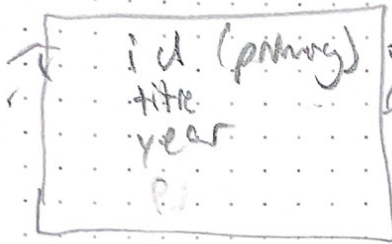 id (primary)
title
year